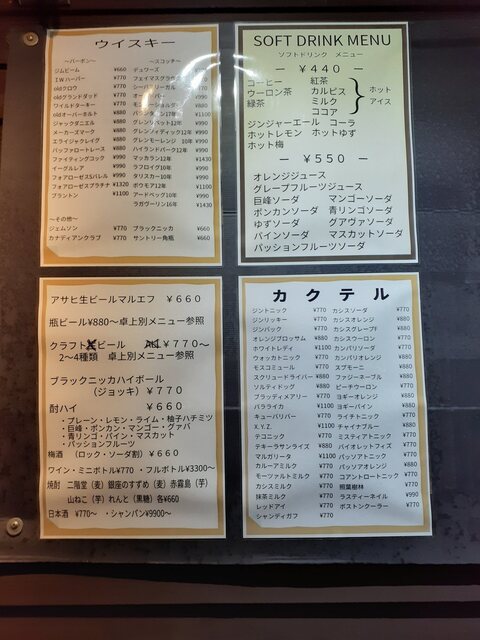 ウイスキー
～バーボン～
ジムビーム ¥660
I.Wハーパー ¥770
oldクロウ ¥770
oldグランダッド ¥770
ワイルドターキー ¥770
ジャックダニエル ¥880
メーカーズマーク ¥880
エライジャクレイグ ¥880
バッファロートレース ¥880
ファイティングコック ¥990
イーグルレア ¥990
フォアローゼスSバレル ¥990
フォアローゼスプラチナ ¥1320
ブラントン ¥1100
～スコッチ～
デュワーズ
フェイマスグラウス
シーバスリーガル
オールドパー
バランタイン17年 ¥1100
グレンリベット12年 ¥990
グレンフィディック12年 ¥990
グレンモーレンジ 10年 ¥990
ハイランドパーク12年 ¥990
マッカラン12年 ¥1430
ラフロイグ10年 ¥990
タリスカー10年 ¥990
ボウモア12年 ¥1100
アードベッグ10年 ¥990
ラガヴーリン16年 ¥1430
～その他～
ジェムソン ¥770 ブラックニッカ ¥660
カナディアンクラブ ¥770 サントリー角瓶 ¥660
SOFT DRINK MENU
ソフトドリンク メニュー
― ¥440 ―
コーヒー 紅茶
ウーロン茶 カルピス ホット
緑茶 ミルク アイス
ココア
ジンジャーエール コーラ
ホットレモン ホットゆず
ホット梅
― ¥550 ―
オレンジジュース
グレープフルーツジュース
巨峰ソーダ マンゴーソーダ
ポンカンソーダ 青リンゴソーダ
ゆずソーダ グアヴァソーダ
パインソーダ マスカットソーダ
パッションフルーツソーダ
アサヒ生ビールマルエフ ¥660
瓶ビール¥880～卓上別メニュー参照
クラフトビール ¥770～
2～4種類 卓上別メニュー参照
ブラックニッカハイボール
(ジョッキ) ¥770
酎ハイ ¥660
・プレーン・レモン・ライム・柚子ハチミツ
・巨峰・ポンカン・マンゴー・グァバ
・青リンゴ・パイン・マスカット
・パッションフルーツ
梅酒 (ロック・ソーダ割) ¥660
ワイン・ミニボトル¥770 ・フルボトル¥3300～
焼酎 二階堂(麦)銀座のすずめ(麦)赤霧島(芋)
山ねこ(芋)れんと(黒糖)各¥660
日本酒 ¥770～ ・シャンパン¥9900～
カクテル
ジントニック ¥770 カシスソーダ ¥770
ジンリッキー ¥770 カシスオレンジ ¥880
ジンバック ¥770 カシスグレープF ¥880
オレンジブロッサム ¥880 カシスウーロン ¥770
ホワイトレディ ¥1100 カンパリソーダ ¥770
ウォッカトニック ¥770 カンパリオレンジ ¥880
モスコミュール ¥770 スプモーニ ¥880
スクリュードライバー ¥880 ファジーネーブル ¥880
ソルティドッグ ¥880 ピーチウーロン ¥770
ブラッディメアリー ¥880 ヨギーオレンジ ¥880
バラライカ ¥1100 ヨギーパイン ¥880
キューバリバー ¥770 ライチトニック ¥770
X.Y.Z. ¥1100 チャイナブルー ¥880
テコニック ¥770 ミスティアトニック ¥770
テキーラサンライズ ¥880 バイオレットフィズ ¥770
マルガリータ ¥1100 パッソアトニック ¥770
カルーアミルク ¥770 パッソアオレンジ ¥880
モーツァルトミルク ¥770 コアントロートニック ¥770
カシスミルク ¥770 照葉樹林 ¥770
抹茶ミルク ¥770 ラスティーネイル ¥990
レッドアイ ¥770 ボストンクーラー ¥770
シャンディガフ ¥770